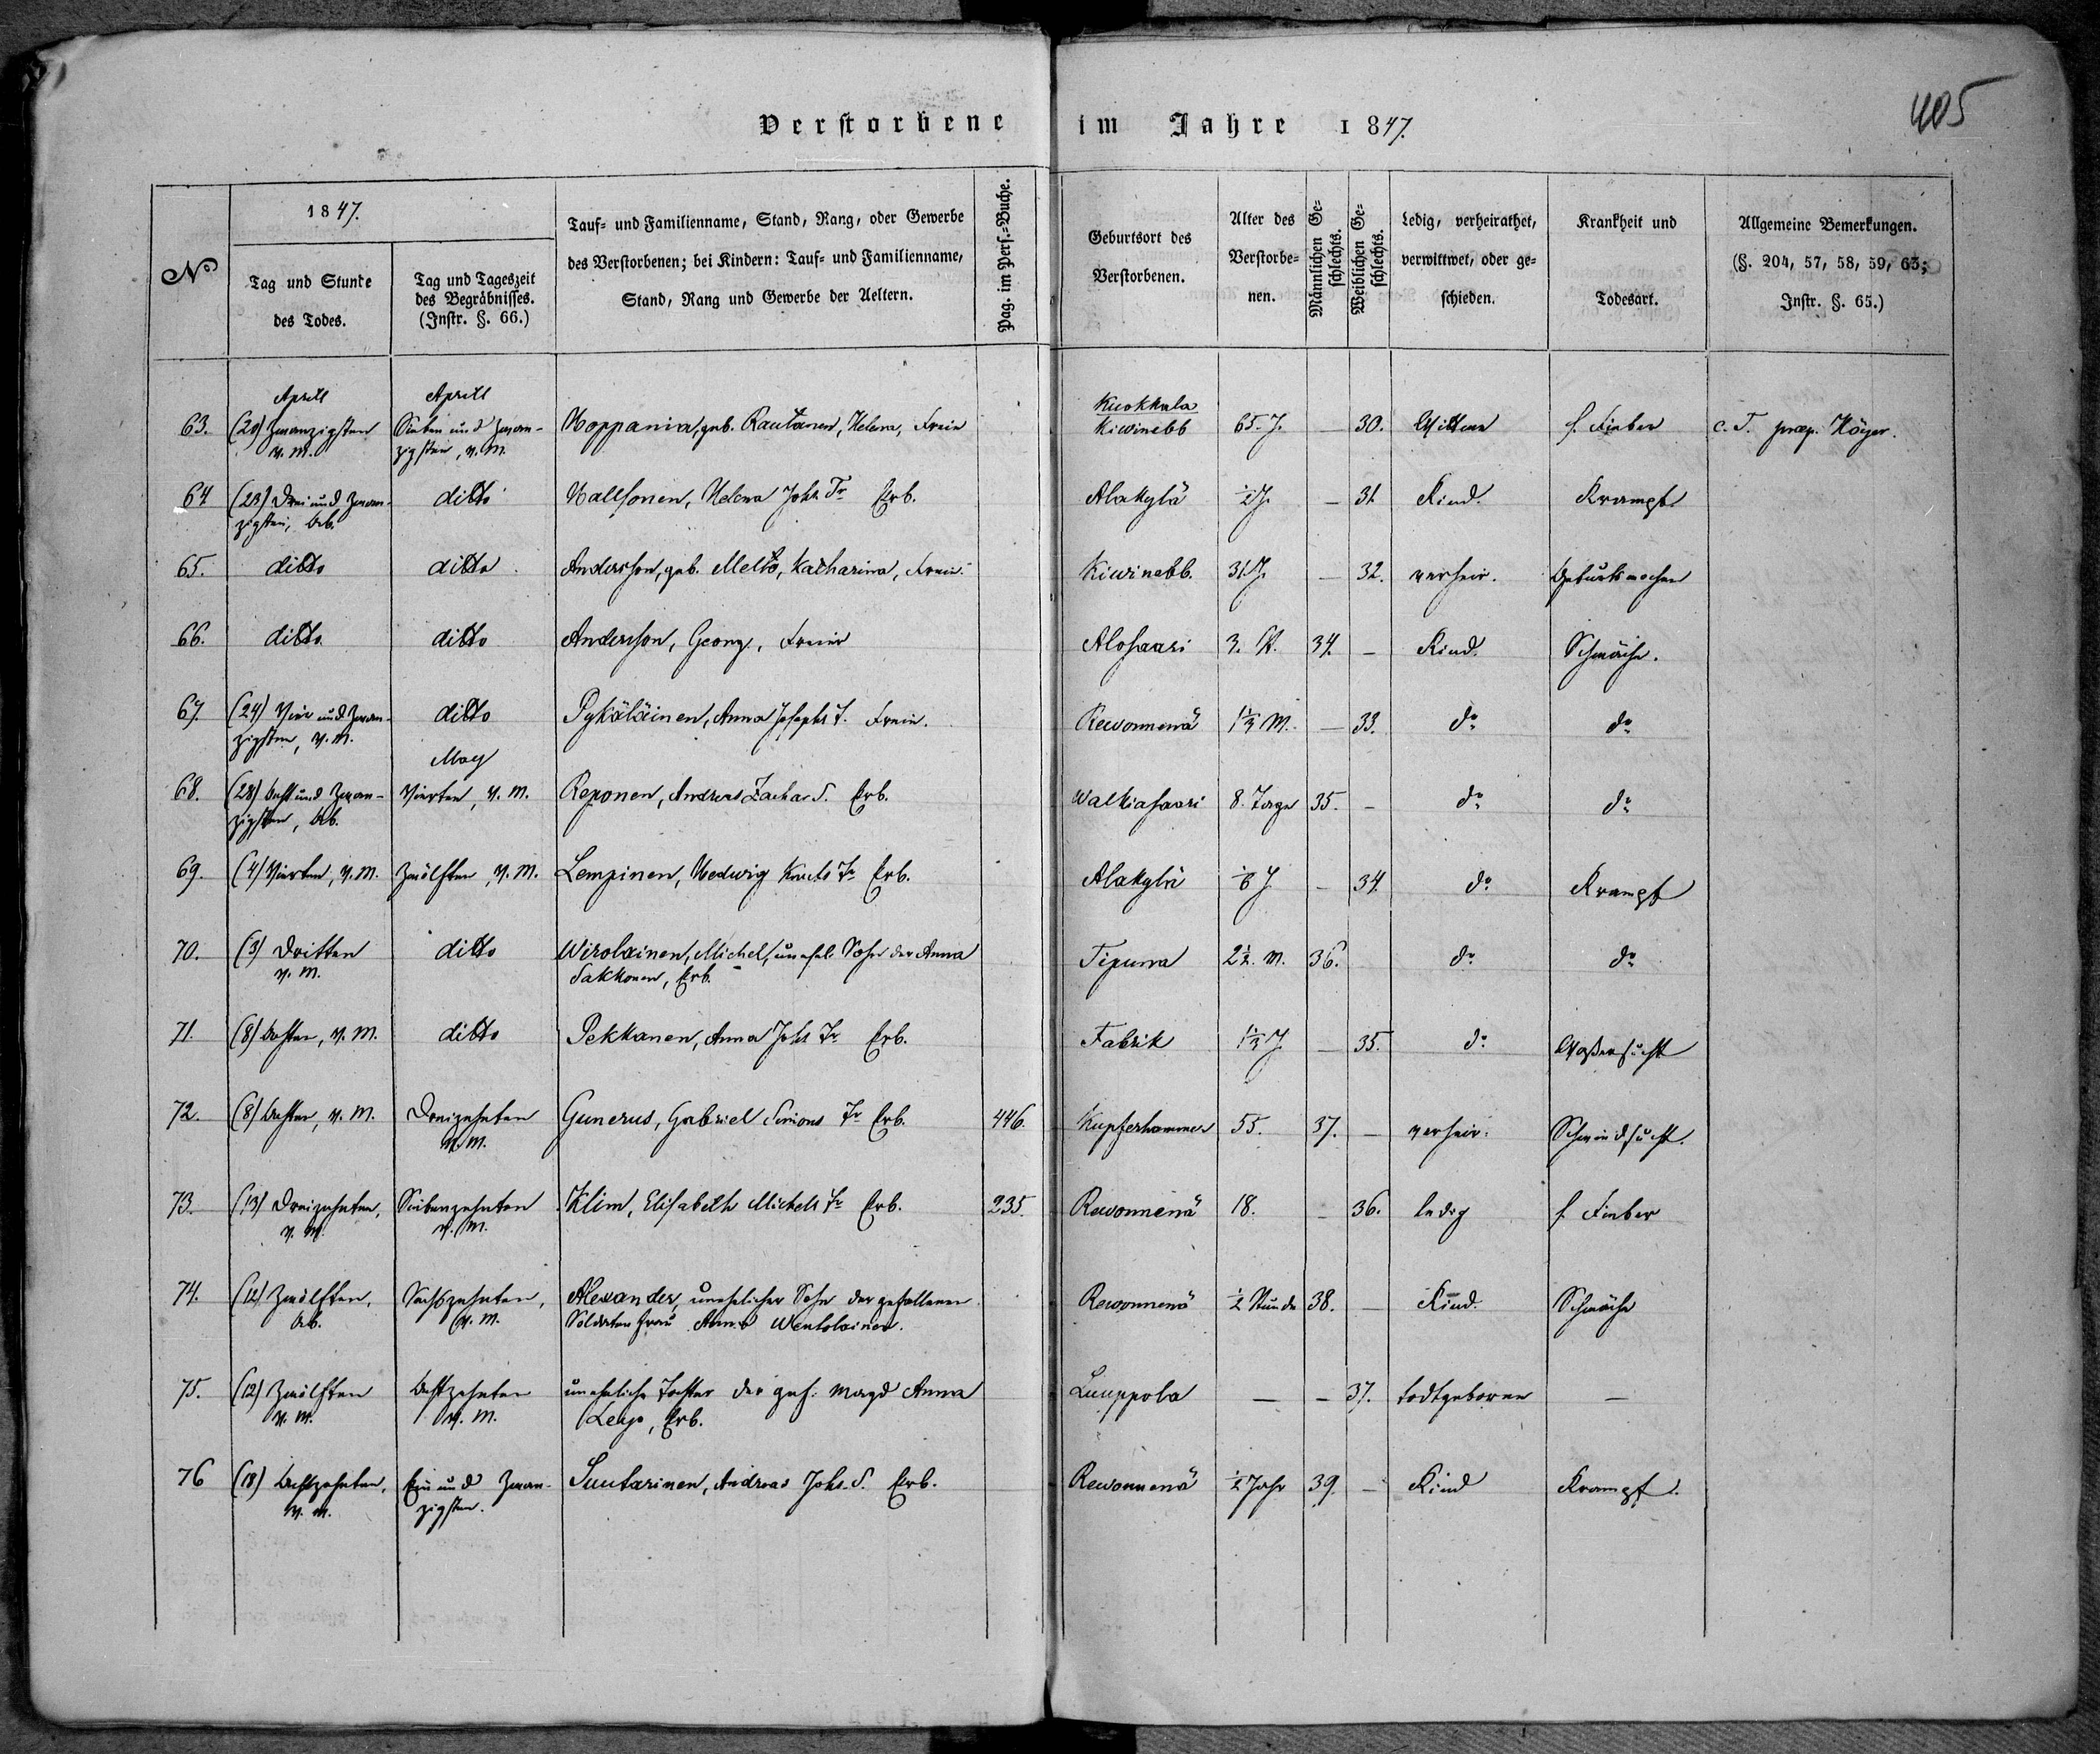 405
Verstorbene im Jahre 1847.
No
1847.
Tag und Stunde
des Todes.
Tag und Tageszeit
des Begräbnisses.
(Instr. §. 66.)
Tauf- und Familienname, Stand, Rang, oder Gewerbe
des Verstorbenen; bei Kindern: Tauf- und Familienname,
Stand, Rang und Gewerbe der Aeltern.
Pag. im Pers.-Buche.
Geburtsort des
Verstorbenen.
Alter des
Verstorbe-
nen.
Männlichen Ge-
schlechts.
Weiblichen Ge-
schlechts.
Ledig, verheirathet,
verwittwet, oder ge-
schieden.
Krankheit und
Todesart.
Allgemeine Bemerkungen.
(§. 204, 57, 58, 59, 63;
Instr. §. 65.)
Aprill Aprill
63. (20) Zwanzigsten Sieben und Zwan- Hoppania, geb. Rautanen, Helena, Kuokkala
v. M. zigsten, v. M. Kiwinebb 65. J. — 30. Wittwe f. Fieber c. T. præp. Höyer.
64 (23) Drei und Zwan- ditto Hallsonen, Helena Johs Tr Erb. Alakylä ½ J. — 31 Kind. Krampf
zigsten, Ab.
65. ditto ditto Andersson, geb. Melto, Katharina, Kiwinebb. 31. J. — 32. verheir.
66. ditto ditto Andersson, Georg, Alosaari 3. W. 34. — Kind. Schwäche.
67. (24) Vier und Zwan- ditto Pykäläinen, Anna Josephs T. Rewonnenä 1⅓ M. — 33. do do
zigsten, v. M.
May
68. (28) Acht und Zwan- Vierten, v. M. Reponen, Andreas Zachar. S. Erb. Walkiasaari 8. Tage 35. — do do
zigsten, Ab.
69. (4) Vierten, v. M. Zwölften, v. M. Lempinen, Hedwig Tr Erb. Alakylä ⅙ J — 34. do Krampf
70. (3) Dritten ditto Wirolainen, Michel, unehel. Sohn der Anna Tipurra 2½. M. 36. do do
v. M. Sakkonen, Erb.
71. (8) Achten, v. M. ditto Pekkanen, Anna Johs Tr Erb. Fabrik 1⅓ J — 35. do Waßersucht
72. (8) Achten, v. M. Dreizehnten Gunerus, Gabriel Simons Erb. 446. Kupferhammer 55. 37. — verheir. Schwindsucht.
v. M.
73. (13) Dreizehnten, Siebenzehnten Klim, Elisabeth Michels Tr Erb. 235. Rewonnenä 18. — 36. ledig f. Fieber
v. M. v. M.
74. (12) Zwölften, Sechszehnten, Alexander, unehelicher Sohn der gefallenen Rewonnenä ½ Stunde 38. — Kind. Schwäche
Ab. v. M. Soldaten Frau Anna Wentolainen.
75. (12) Zwölften Achtzehnten uneheliche Tochter der gef. Magd Anna Luuppola — — 37. todtgeboren —
v. M. v. M. Leyo, Erb.
76 (18) Achtzehnten, Ein und Zwan- Suutarinen, Andreas Johs. S. Erb. Rewonnenä ½ Jahr 39. — Kind Krampf.
v. M. zigsten.